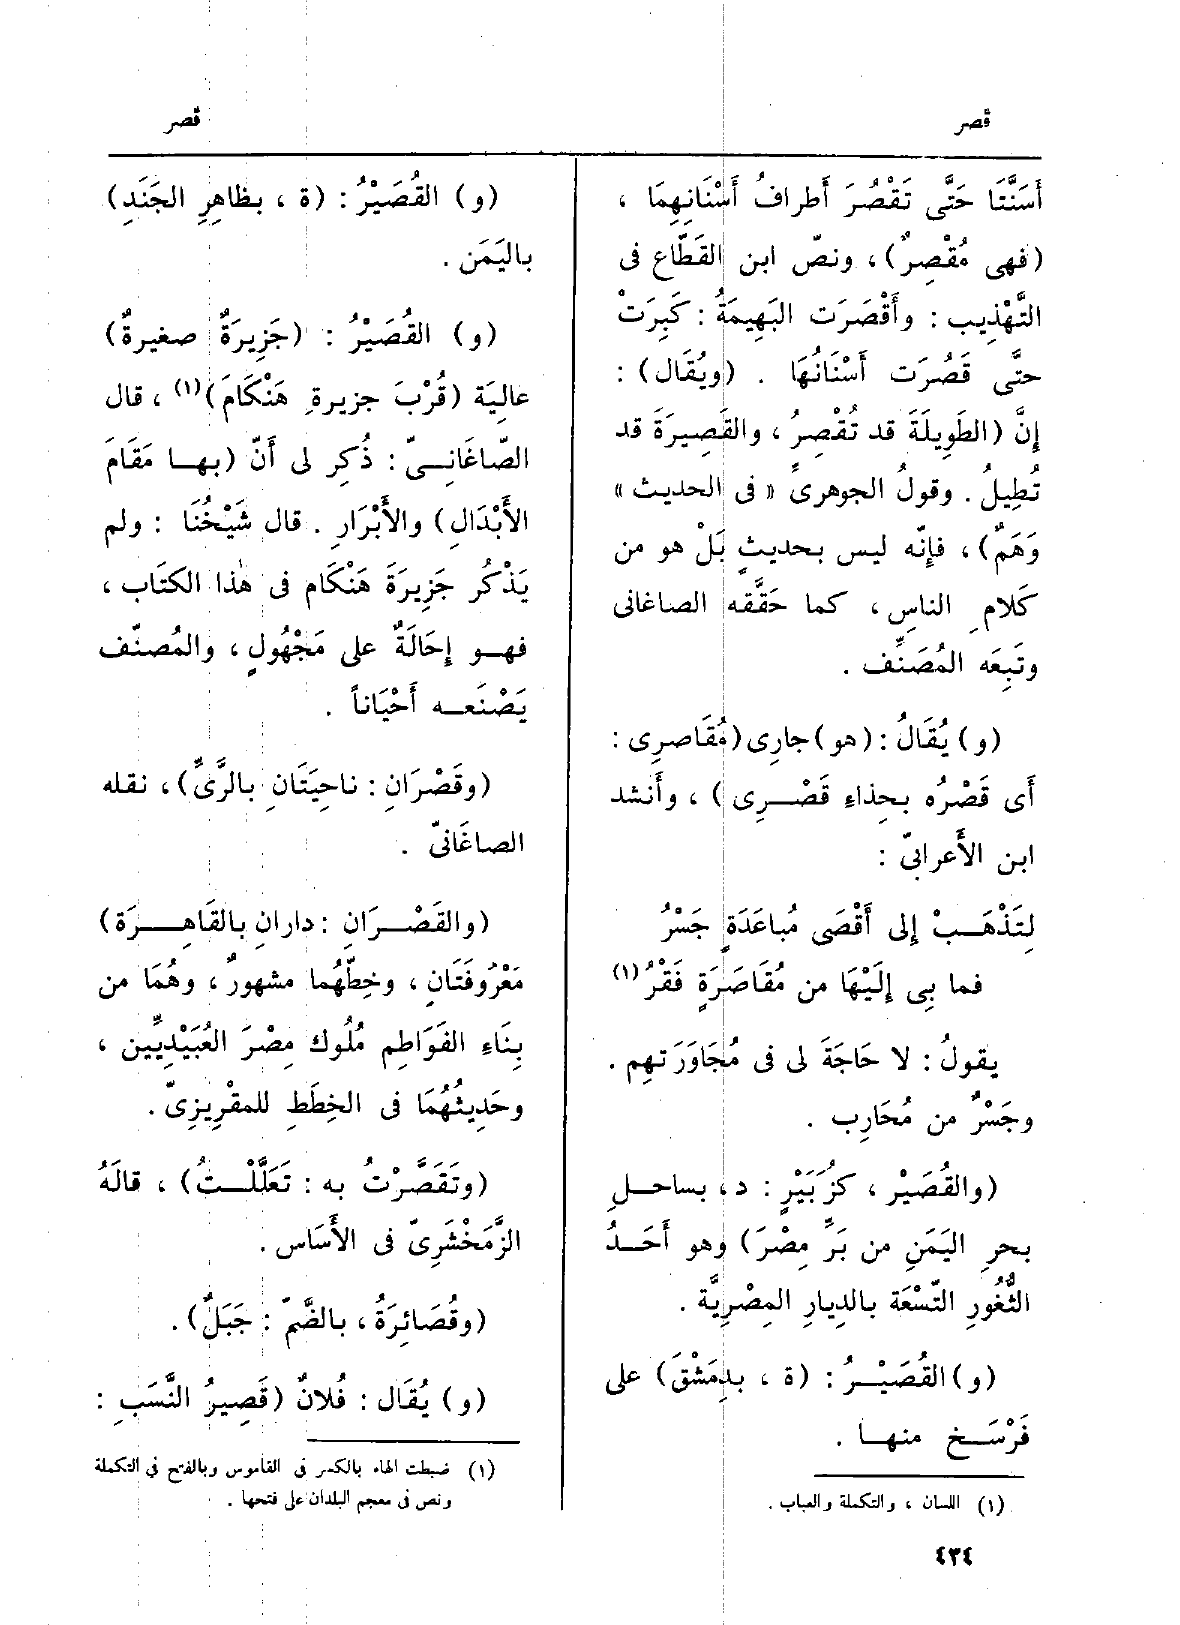 قصر
قصر
أَسَنَّتَا حَتَّى تَقْصُرَ أَطرافُ أَسْنَانِهِمَا ،
(فهى مُقْصِرٌ)، ونصّ ابن القَطَّاع فى
التَّهْذِيب : وأَقْصَرَت البَهِيمَةُ : كَبِرَتْ
حتَّى قَصُرَت أَسْنَانُهَا . (ويُقَال) :
إِنَّ (الطَوِيلَةَ قد تُقْصِرُ ، والقَصِيرَةَ قد
تُطِيلُ . وقولُ الجوهرىّ « فى الحديث »
وَهَمٌ) ، فإِنّه ليس بحديثٍ بَلْ هو من
كَلامِ الناسِ ، كما حَقَّقه الصاغانى
وتَبِعَه المُصَنِّف .
(و) يُقَالُ : (هو) جارِى (مُقَاصرِى :
أَى قَصْرُه بحِذاءِ قَصْرِى ) ، وأَنشد
ابن الأَعرابىّ :
لِتَذْهَبْ إِلى أَقْصَى مُباعَدَةٍ جَسْرُ
فما بِى إِلَيْهَا من مُقَاصَرَةٍ فَقْرُ (١)
يقولُ : لا حَاجَةَ لى فى مُجَاوَرَتهِم .
وجَسْرٌ من مُحَارِب .
(والقُصَيْر ، كزُبَيْرٍ : د، بساحلِ
بحرِ اليَمَنِ من بَرِّ مِصْرَ) وهو أَحَدُ
الثُّغُورِ التّسْعَة بالدِيارِ المِصْرِيَّة .
(و) القُصَيْرُ : (ة ، بدِمَشْقَ) على
فَرْسَخ منها .
(١) اللسان ، والتكملة والعباب .
٤٣٤
(و) القُصَيْرُ : (ة ، بظاهِرِ الجَنَدِ)
باليَمَن .
(و) القُصَيْرُ : (جَزِيرَةٌ صغيرةٌ)
عالِيَة (قُرْبَ جزيرةِ هَنْكَامَ)(١) ، قال
الصّاغَانِىّ : ذُكِر لى أَنّ (بها مَقَامَ
الأَبْدَالِ) والأَبْرَارِ . قال شَيْخُنَا : ولم
يَذْكُر جَزِيرَةَ هَنْكَام فى هٰذا الكتَاب ،
فهو إِحَالَةٌ على مَجْهُولٍ ، والمُصنّف
يَصْنَعه أَحْيَاناً .
(وقَصْرَانِ : ناحِيَتَانِ بالرَّىِّ) ، نقله
الصاغَانىّ .
(والقَصْرَانِ : دارانِ بالقَاهِرَة)
مَعْرُوفَتَانِ ، وخِطّهُما مشهورٌ ، وهُمَا من
بِنَاءِ الفَوَاطِم مُلُوك مِصْرَ العُبَيْدِيِّين ،
وحَدِيثُهُمَا فى الخِطَطِ للمقْرِيزِىّ .
(وتَقَصَّرْتُ به : تَعَلَّلْتُ) ، قالَهُ
الزَّمَخْشَرِىّ فى الأَسَاس .
(وقُصَائِرَةُ ، بالضَّمّ : جَبَلٌ) .
(و) يُقَال : فُلانٌ (قَصِيرُ النَّسَبِ :
(١) ضبطت الهاء بالكسر فى القاموس وبالفتح فى التكملة
ونص فى معجم البلدان على فتحها .